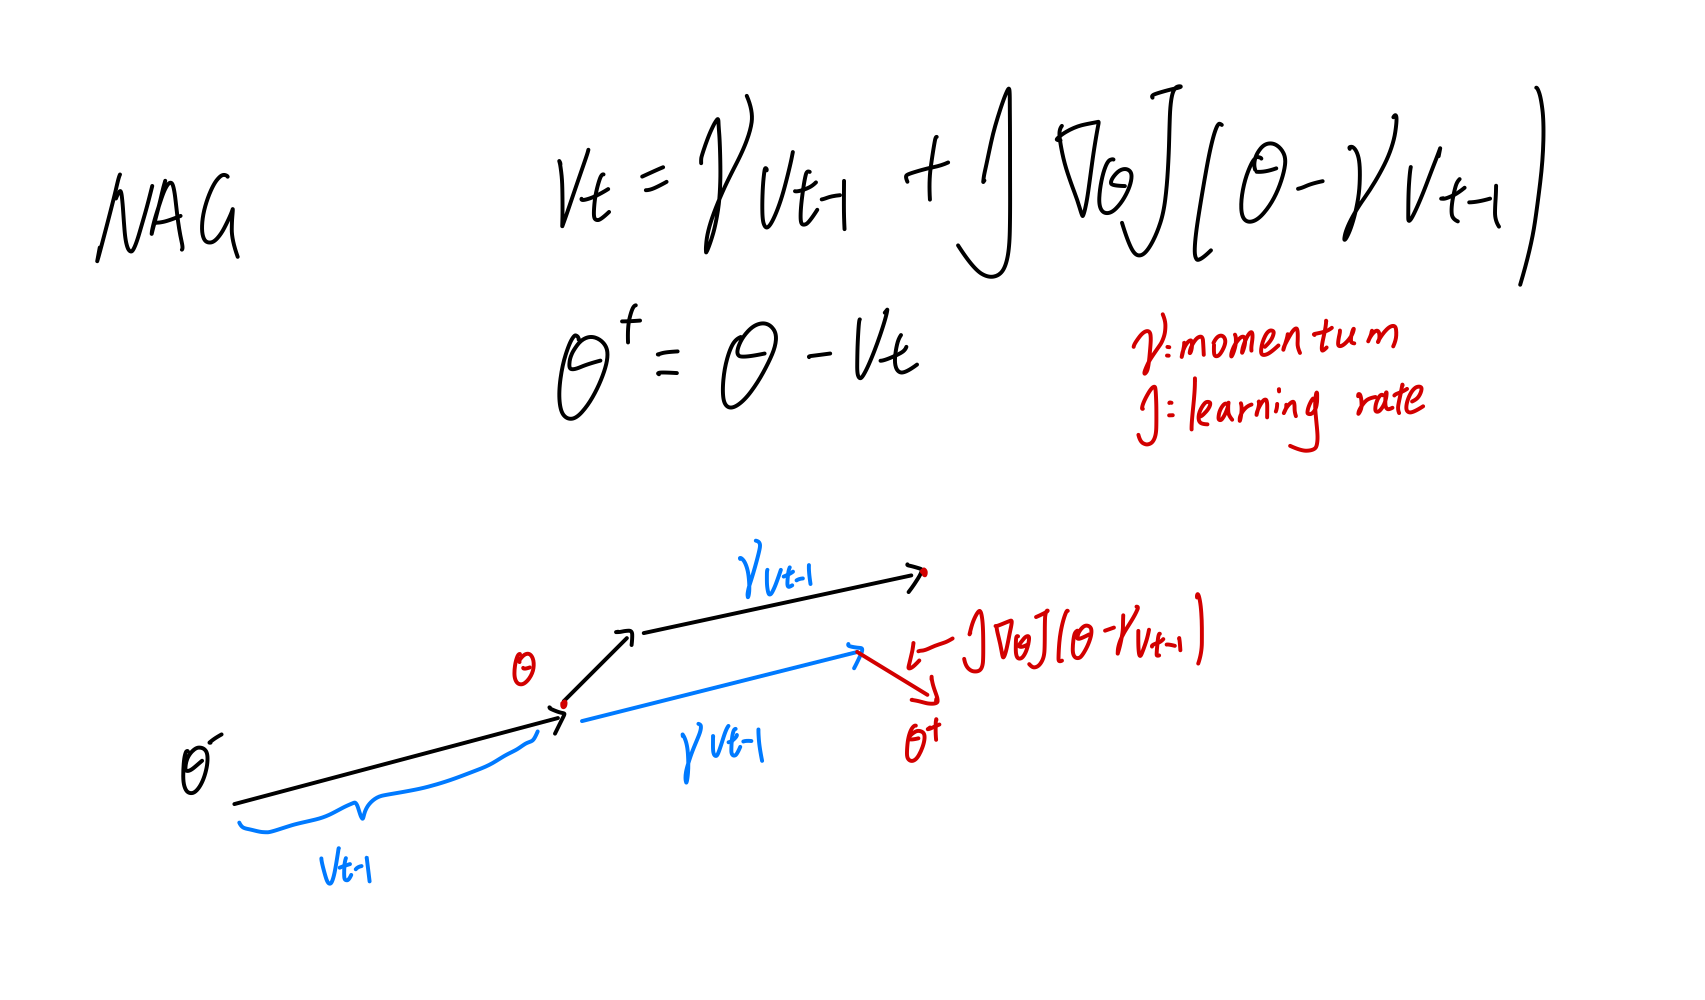 NAG
Vt = γVt-1 + J ∇θJ(θ-γVt-1)
θ⁺ = θ - Vt
γ: momentum
J: learning rate
γVt-1
J∇θJ(θ-γVt-1)
θ
γVt-1
θ⁺
θ⁻
Vt-1